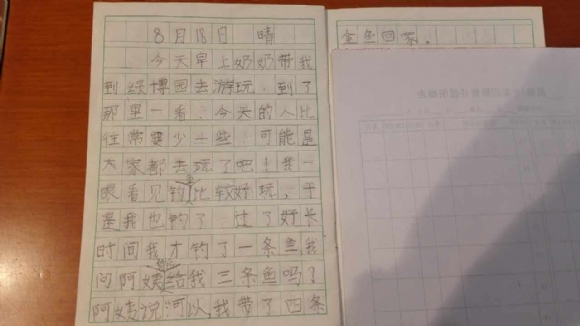 8月18日 晴
今天早上奶奶带我
到绿博园去游玩，到了
那里一看：今天的人比
往常要少一些：可能是
大家都去玩了吧！我一
眼看见钓鱼比较好玩，于
是我也钓了一过了好长
时间我才钓了一条鱼我
问阿姨给我三条鱼吗？
阿姨说：可以我带了四条
金鱼回家。